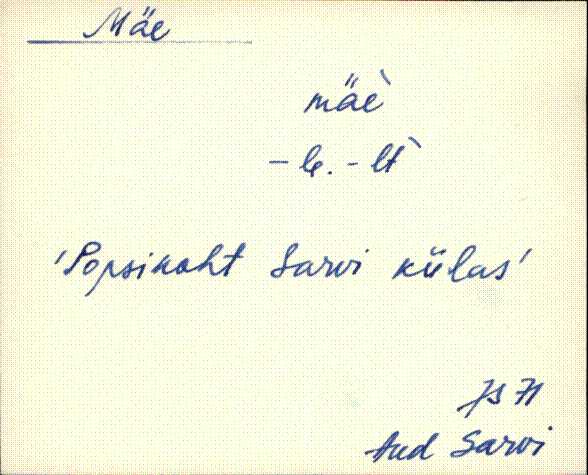 Mäe
mäè
-le. -lt̀
'Popsikoht Sarvi külas'
JS 71
Aud Sarvi